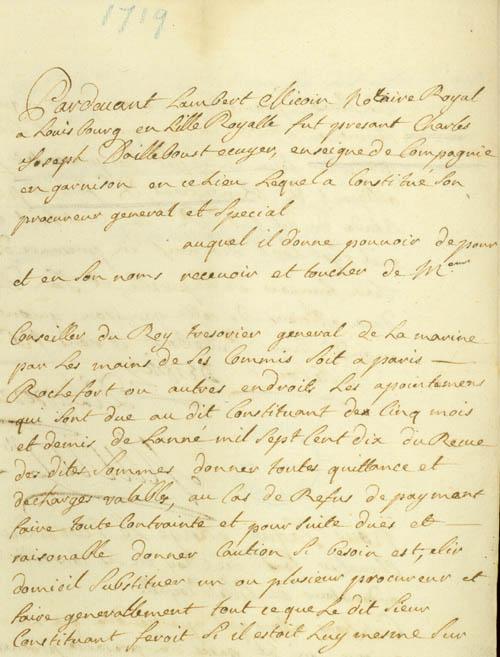 1719
Pardevant Lambert Micoin Notaire Royal
a Louisbourg en Lille Royalle fut presant Charles
Joseph Dailleboust ecuyer, enseigne de Compagnie
en garnison en ce lieu Lequel a Constitué Son
procureur general et Special
auquel il donne pouvoir de pour
et en Son noms recevoir et toucher de Mr
Conseiller du Roy tresorier general de La marine
par Les mains de Ses Commis Soit a paris —
Rochefort ou autres endroits Les apointemens
qui Sont due au dit Constituant des Cinq mois
et demis de Lanné mil Sept Cent dix du Receue
des dites Sommes donner toutes quittance et
decharges valables, au Cas de Refus de payment
faire toute Contrainte et pour Suite dues et
raisonable donner Caution Si besoin est, elir
domicil Substituer un ou plusieur procureur et
faire generallement tout ce que Le dit Sieur
Constituant feroit Si il estoit Luy mesme Sur